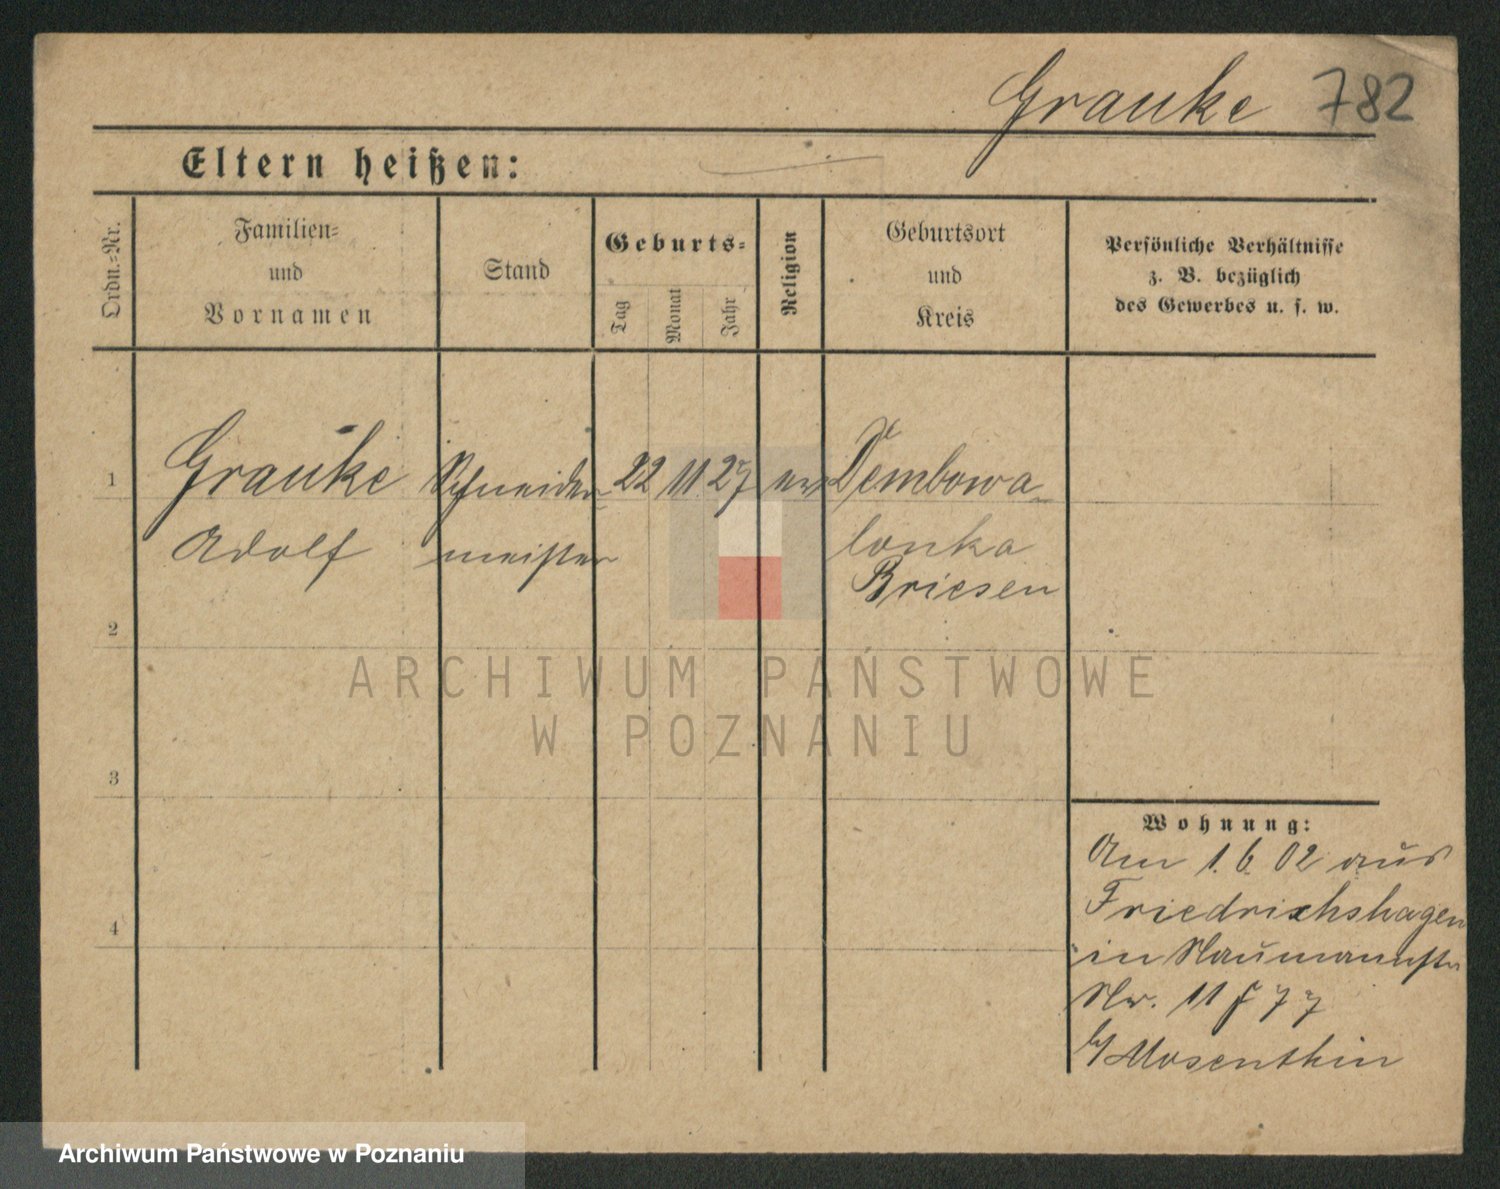 Grauke 782
Eltern heißen:
Ordn.-Nr.
Familien-
und
Vornamen
Stand
Geburts-
Tag
Monat
Jahr
Religion
Geburtsort
und
Kreis
Persönliche Verhältnisse
z. B. bezüglich
des Gewerbes u. s. w.
1 Grauke Schneider 22 11 27 Dembowa
Adolf meister lonka
Briesen
2
3
4
Wohnung:
Am 1. 6. 02 aus
Friedrichshagen
in Naumannstr
Nr. 11
b/ Mosenthin
ARCHIWUM PAŃSTWOWE
W POZNANIU
Archiwum Państwowe w Poznaniu